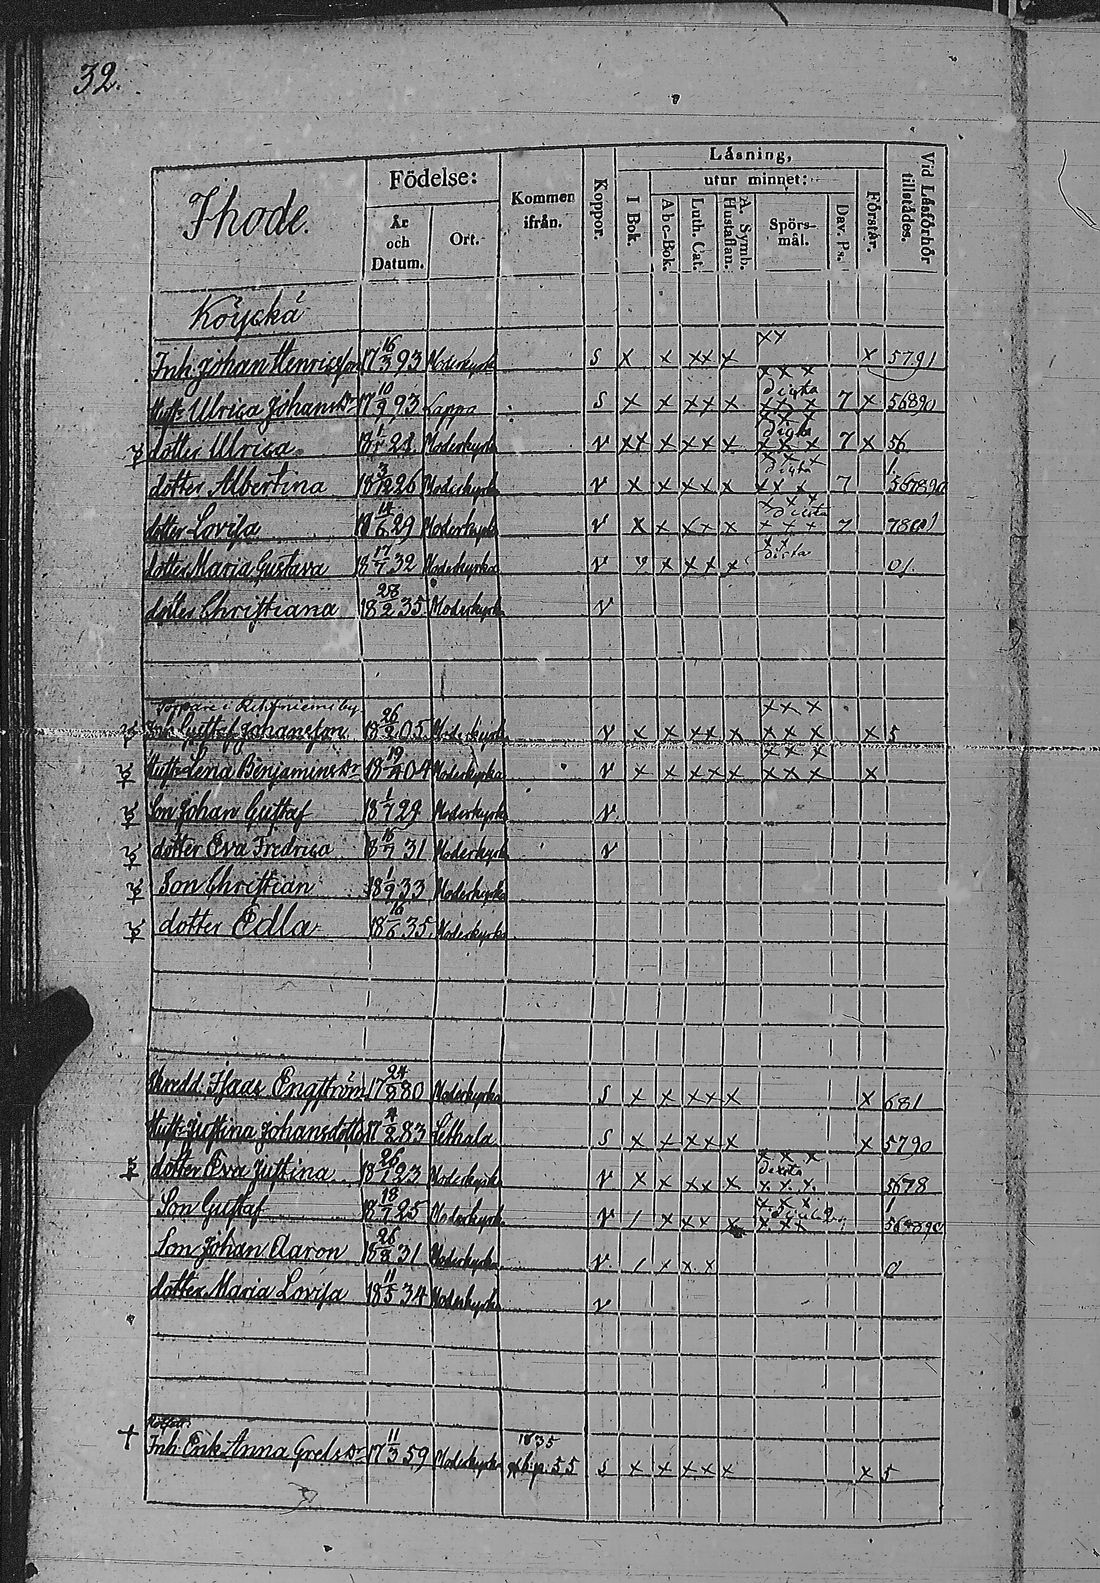 32.
Ihode.
Födelse:
År och Datum.
Ort.
Kommen ifrån.
Koppor.
Läsning,
utur minnet:
I Bok.
Abc-Bok.
Luth. Cat.
A. Symb. Hustaflan.
Spörs-mål.
Dav. Ps.
Förstår.
Vid Läsförhör tillstädes.
Köyckä
Inh. Johan Henricsson 17 16/3 93 Moderkyrk S x x xx x xx x 5791
Hustr. Ulrica Johansdr 17 10/9 93 Lappo S x x xx x xxx 7 x 56890
dotter Ulrica Moderkyrk v xx x xxx x xxx 7 x 56
dotter Albertina 18 3/12 26 Moderkyrk v x x xx x xxx 7 567890
dotter Lovisa 18 14/6 29 Moderkyrk v x x xx x xxx 7
dotter Maria Gustava 18 17/7 32 Moderkyrka v x xx x xx 01
dotter Christiana 18 28/2 35 Moderkyrk v
Torpare i by
Inh. Gustaf Johansson 18 26/2 05 Moderkyrk v x x xx x xxx x 5
Hustr. Lena Benjaminsdr 18 19/4 04 Moderkyrka v x x xx x xxx x
Son Johan Gustaf 18 1/7 29 Moderkyrk v
dotter Eva Fredrica 18 16/7 31 Moderkyrk v
Son Christian 18 1/9 33 Moderkyrk
dotter Edla 18 16/6 35 Moderkyrk
Skredd. Isaac Engström 17 24/2 80 Moderkyrka S x x xx x x 681
Hustr. Justina Johansdotter 17 4/2 83 Lethala S x x xx x x 5790
dotter Eva Justina 18 26/1 23 Moderkyrk v x x xx x xxx 5678
Son Gustaf 18 18/7 25 Moderkyrk v / x xx x xxx
Son Johan Aaron 18 26/2 31 Moderkyrka v / x x x 0
dotter Maria Lovisa 18 11/5 34 Moderkyrk v
Inh. Enk. Anna Gretsdr 17 11/3 59 Moderkyrk 1835 55 S x x xx x x 5